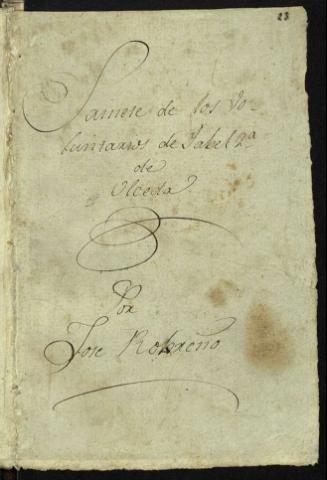 23
Sainete de los Vo-
luntarios de Isabel 2ª
de
Olceda
Por
Jose Robreño